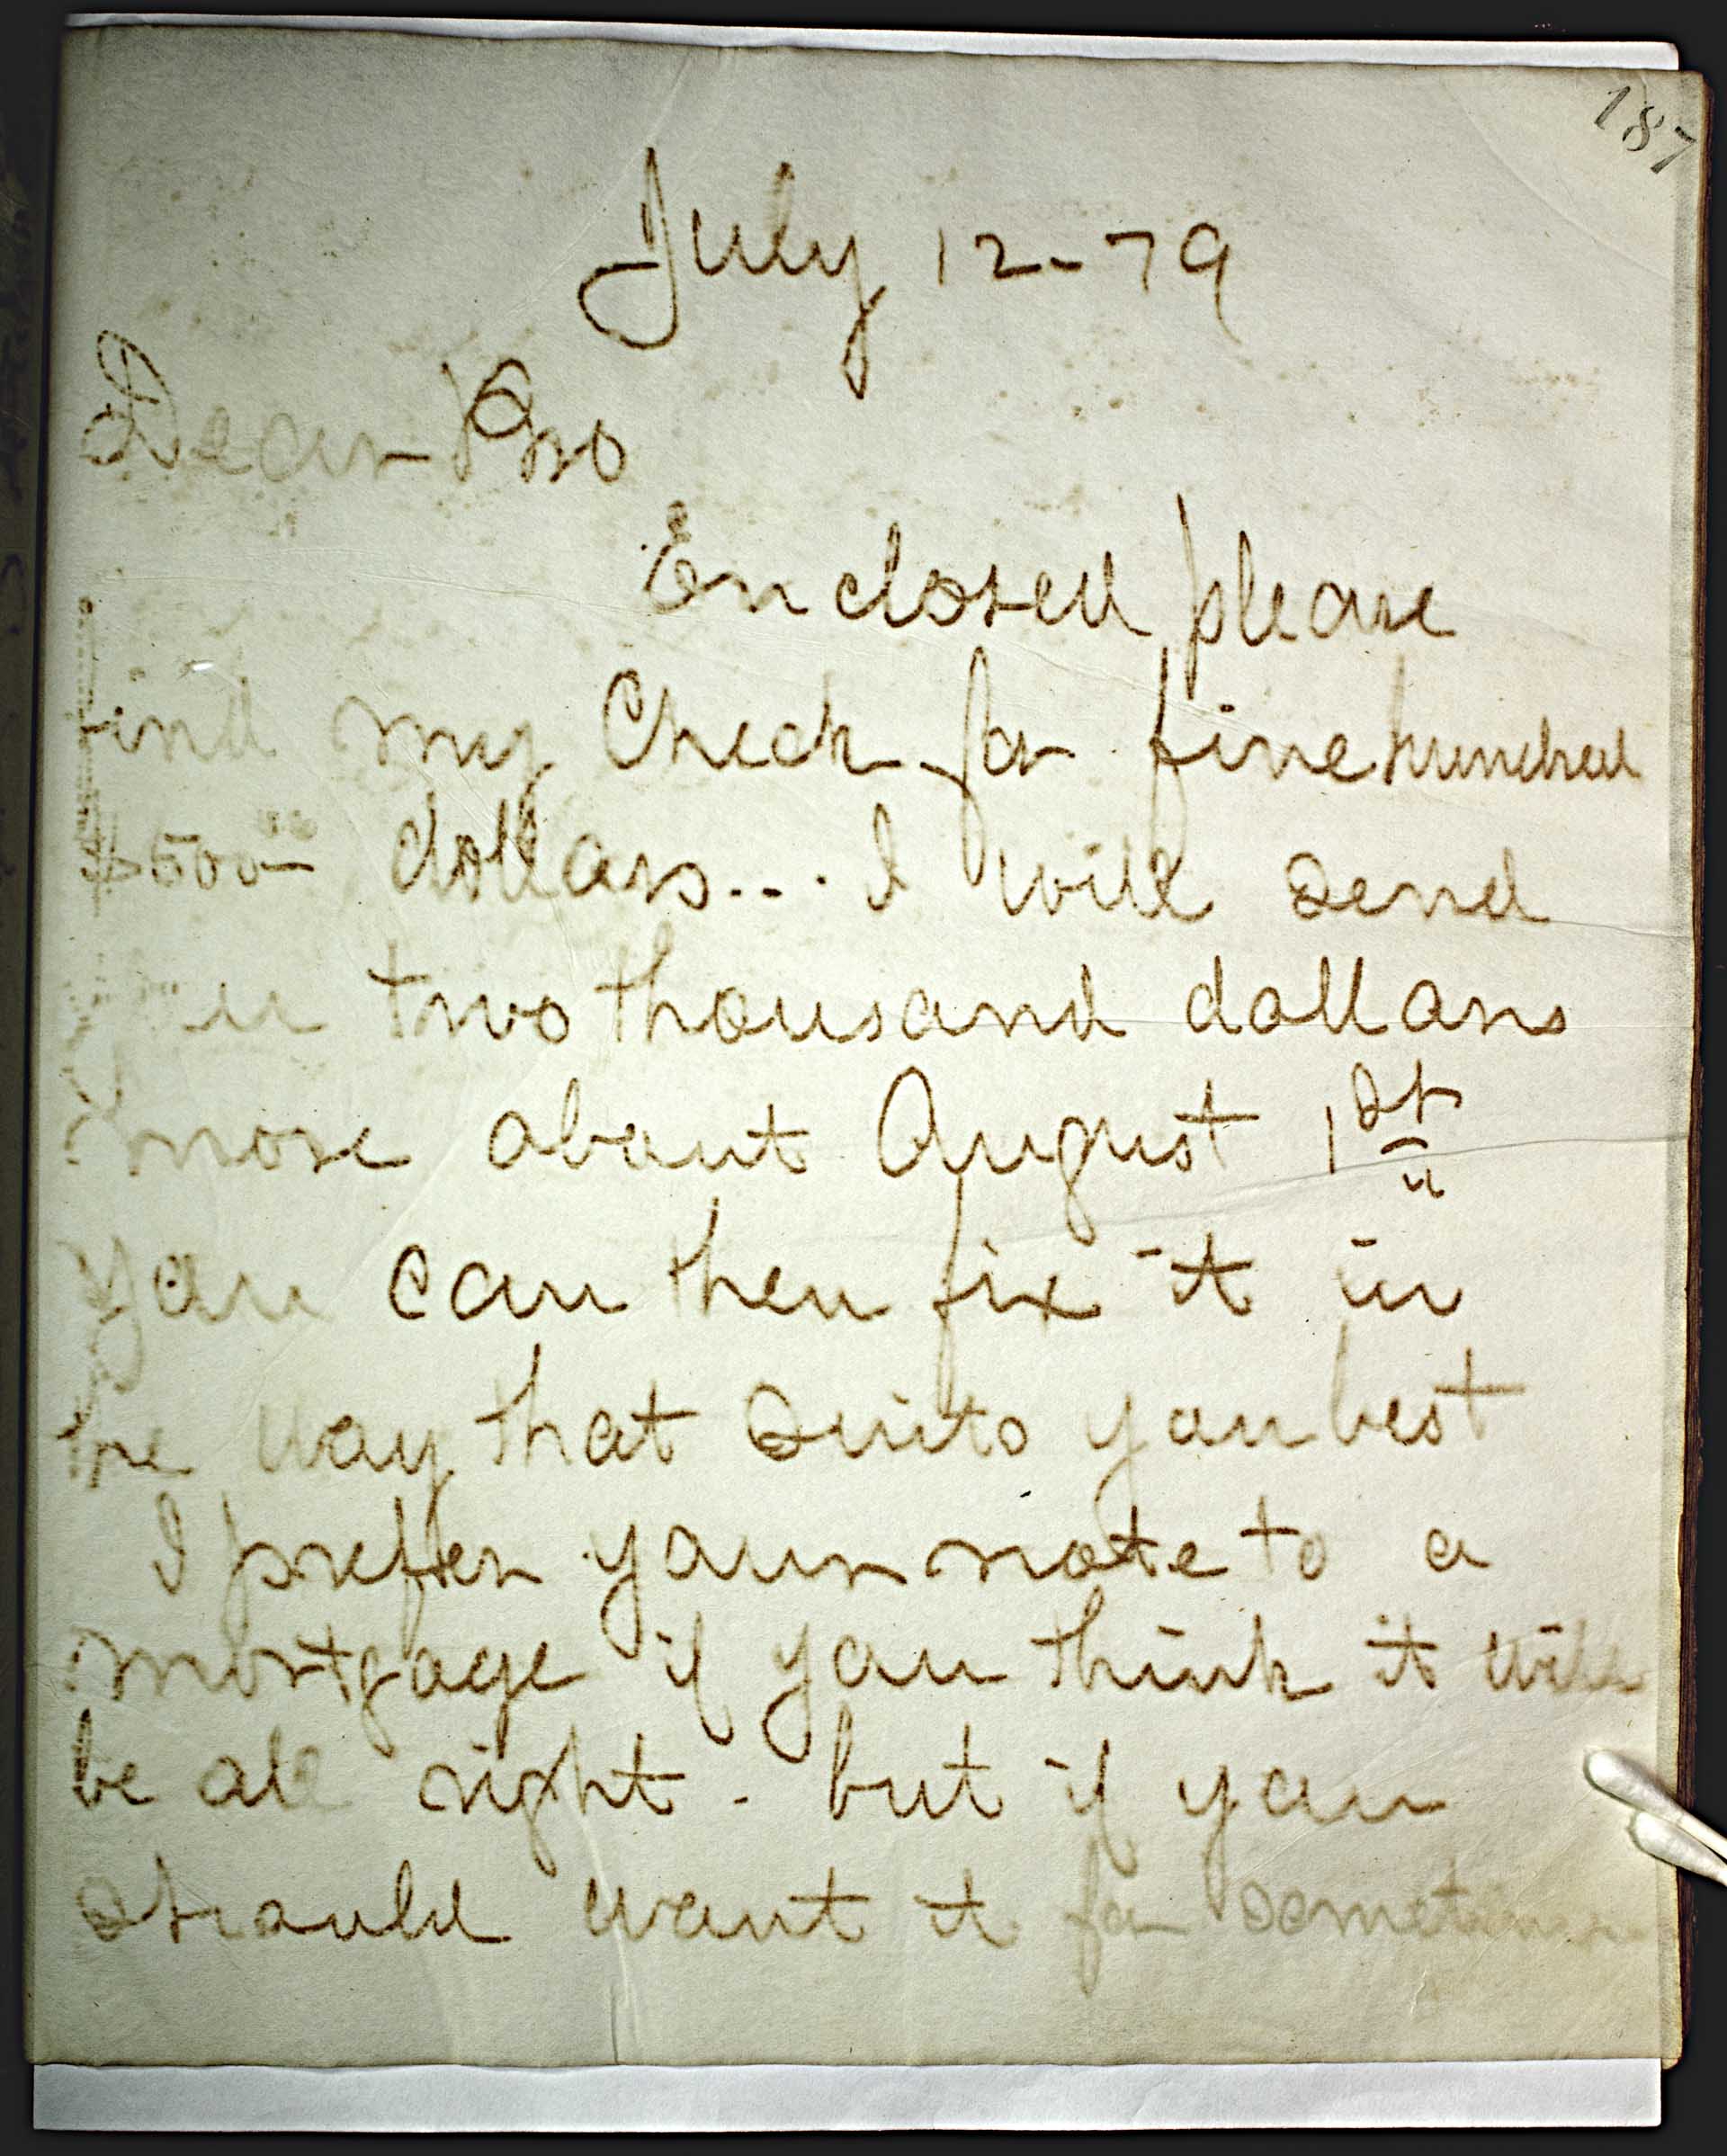 187
July 12-79
Dear Bro
Enclosed please
find my Check for five hundred
$500 00 dollars... I will send
two thousand dollars
more about August 1st
you can then fix it in
the way that suits you best
I prefer your note to a
mortgage if you think it will
be all right - but if you
should want it for sometime